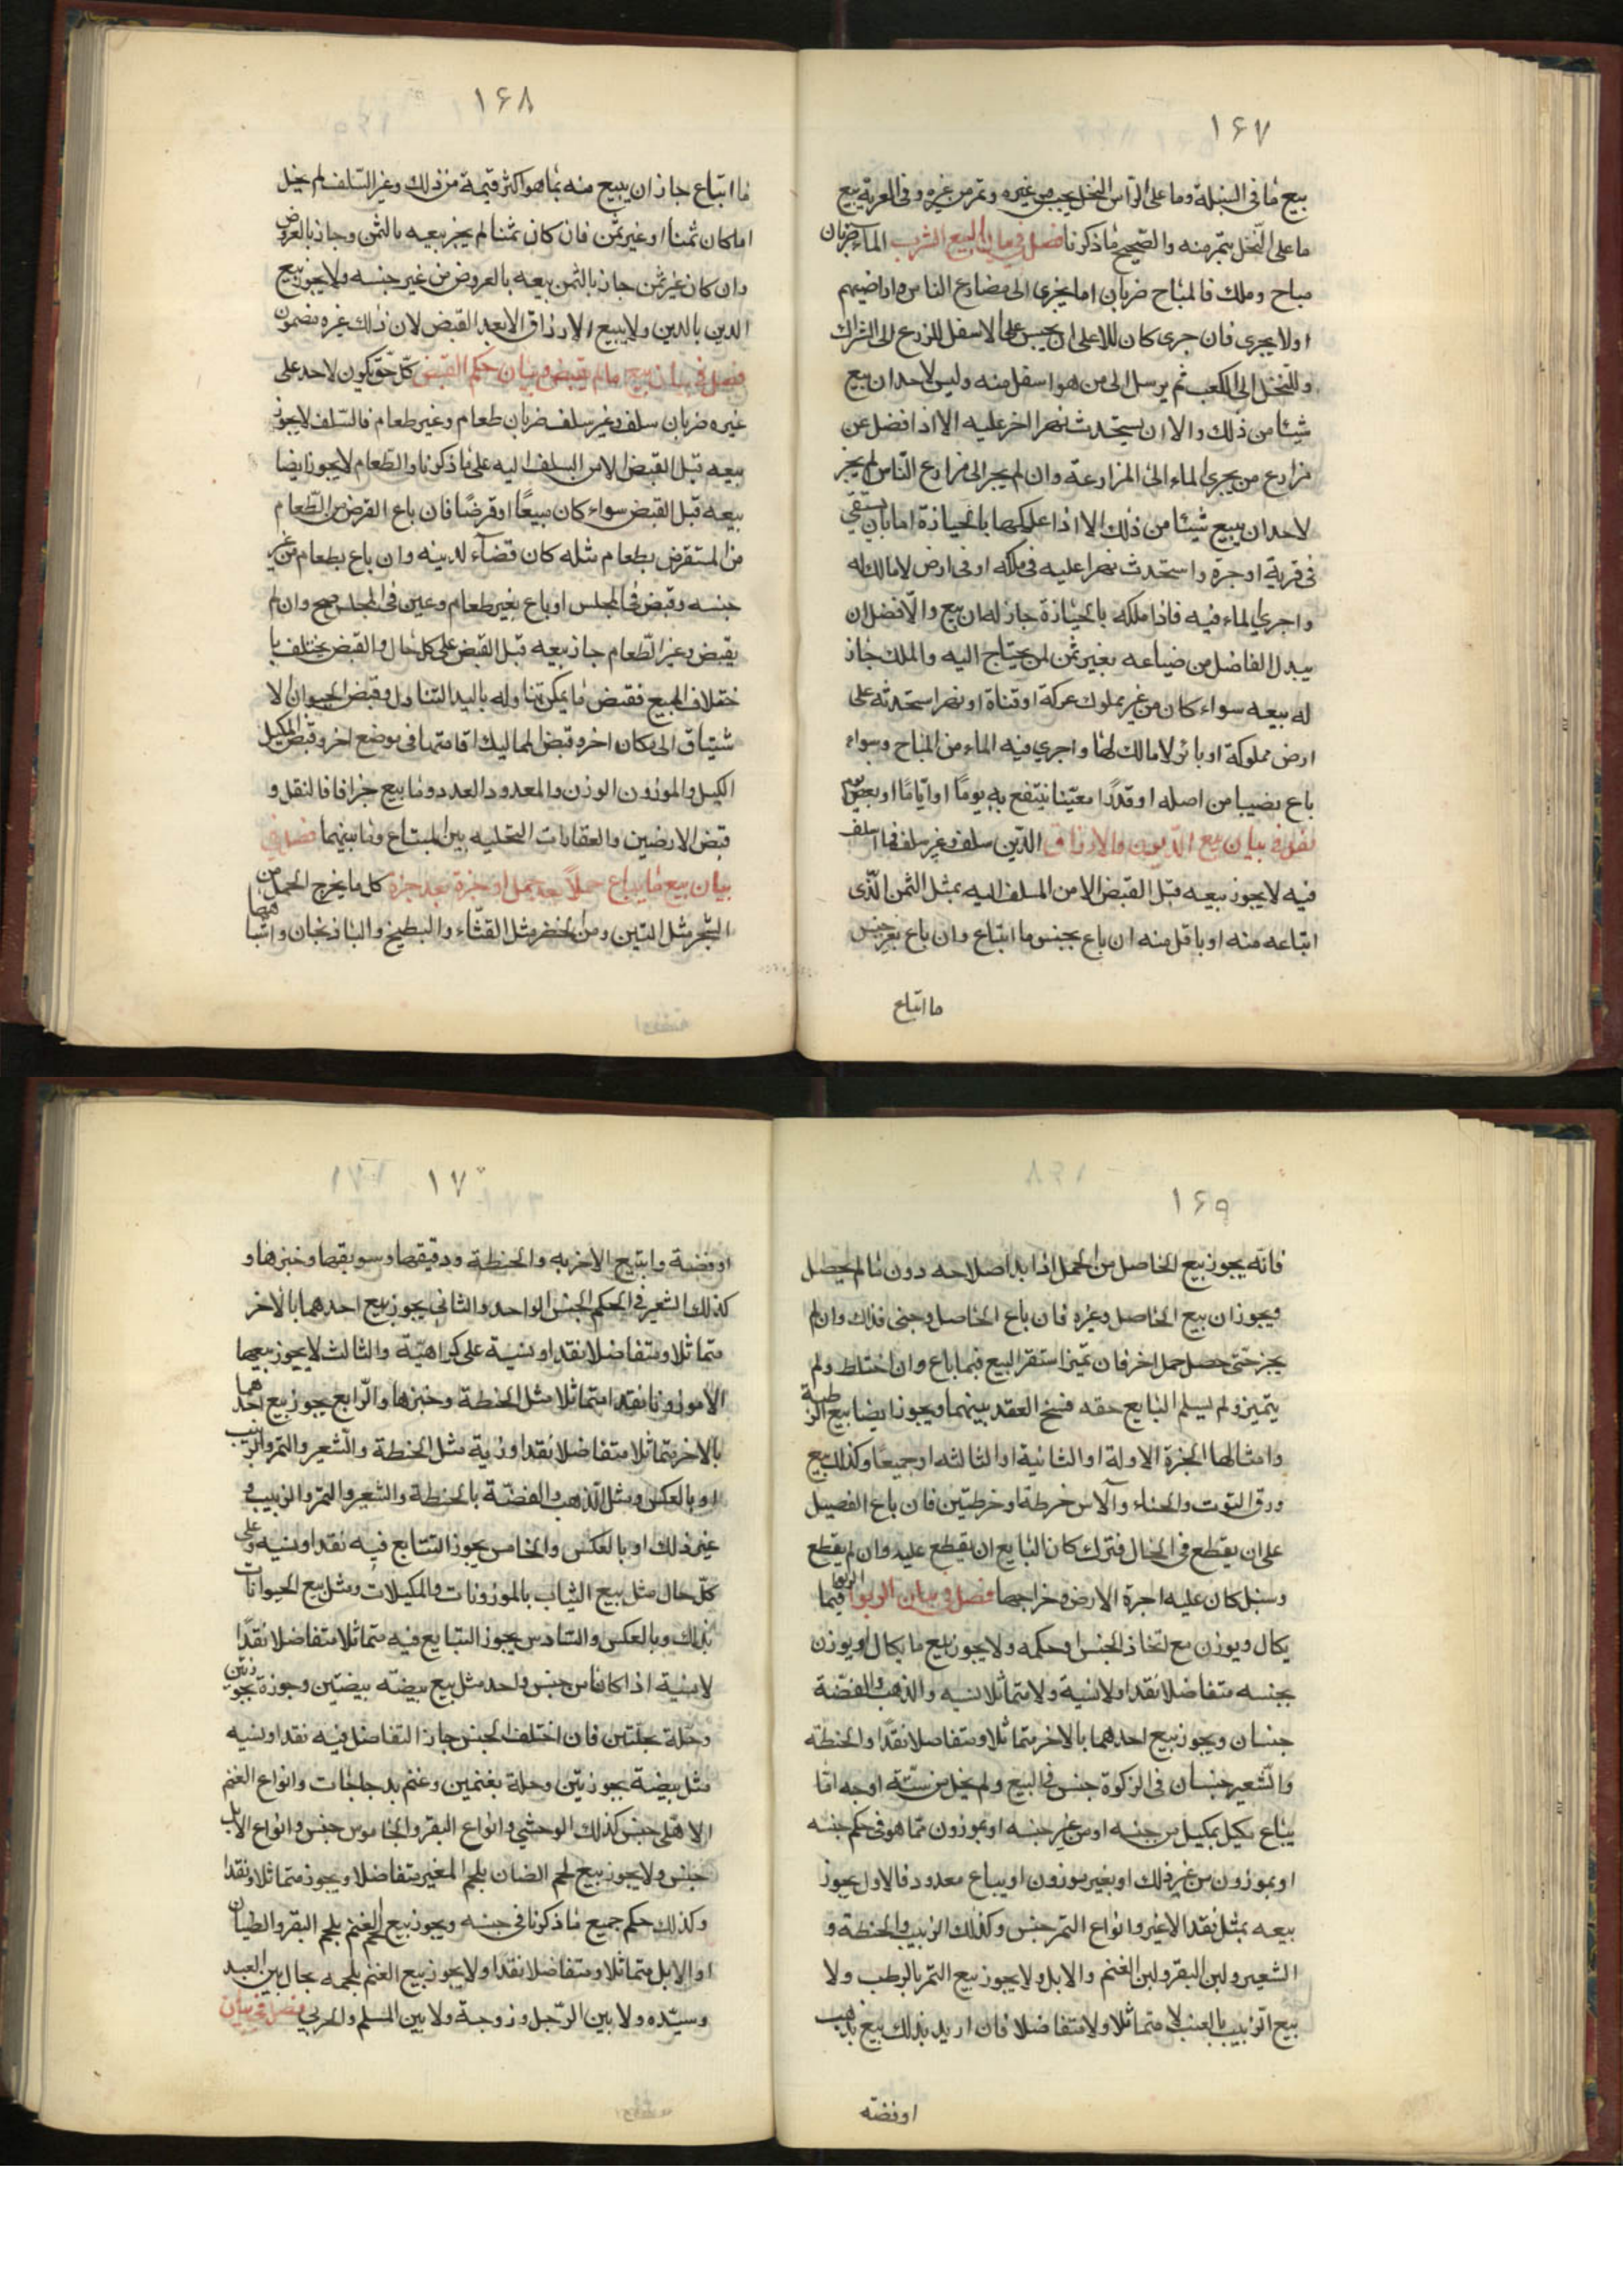 ١۶٧
بيع ما فى السنبلة وما على الرأس النخل بحب من غيره وتمر من غيره وفى العرية بيع
ما على النخل بتمر منه والصحيح ما ذكرنا فصل فى بيان البيع الشرب الماء ضربان
مباح وملك فالمباح ضربان اما يجرى الى مضارع الناس واراضيهم
او لا يجرى فان جرى كان للاعلى ان يحبس على الاسفل للزرع الى الشراك
وللنخل الى الكعب ثم يرسل الى من هو اسفل منه وليس لاحد ان بيع
شيئا من ذلك والا ان يستحدث نهرا اخر عليه الا اذا فضل عن
مزارع من يجرى الماء الى المزارعة وان لم يجر الى مزارع الناس لم يجز
لاحد ان يبيع شيئا من ذلك الا اذا ملكها بالحيازة اما بان يستقى
فى قربة او جرة واستحدث نهرا عليه فى ملكه او فى ارض لا مالك له
واجرى الماء فيه فاذا ملكه بالحيازة جاز له ان بيع والافضل ان
يبدل الفاضل من ضياعه بغير ثمن لمن يحتاج اليه والملك جاز
له بيعه سواء كان من غير مملوك عمركة او قناة او نهر استحدثه على
ارض مملوكة او بائر لا مالك لها واجرى فيه الماء من المباح وسواء
باع نصيبا من اصله او قدرا معينا ينتفع به يوما او اياما او بعض يوم
فصل فى بيان بيع الديون والارزاق الدين سلف وغير سلف فما اسلف
فيه لا يجوز بيعه قبل القبض الا من المسلف اليه بمثل الثمن الذى
ابتاعه منه او باقل منه ان باع بجنس ما ابتاع وان باع بغير جنس
ما ابتاع
١۶٨
ما ابتاع جاز ان يبيع منه بما هو اكثر قيمة من ذلك وغير السلف لم يخل
اما كان ثمنا او غير ثمن فان كان ثمنا لم يجز بيعه بالثمن وجاز بالعروض
وان كان غير ثمن جاز بالثمن بيعه بالعروض من غير جنسه ولا يجوز بيع
الدين بالدين ولا يبيع الارزاق الا بعد القبض لان ذلك غيره مضمون
فصل فى بيان بيع ما لم يقبض وبيان حكم القبض كل حق يكون لاحد على
غيره ضربان سلف وغير سلف ضربان طعام وغير طعام فالسلف لا يجوز
بيعه قبل القبض الا من السلف اليه على ما ذكرنا والطعام لا يجوز ايضا
بيعه قبل القبض سواء كان مبيعًا او قرضًا فان باع القرض من الطعام
من المستقرض بطعام مثله كان قضآء لدينه وان باع بطعام من غير
جنسه وقبض فى المجلس او باع بغير طعام وعين فى المجلس صح وان لم
يقبض وغير الطعام جاز بيعه قبل القبض على كل حال والقبض يختلف با
ختلاف المبيع فقبض ما يمكن تناوله باليد التناول وقبض الحيوان ا لا
ستياق الى مكان اخر وقبض المماليك اقامتها فى موضع اخر وقبض المكيل
الكيل والموزون الوزن والمعدود العدد وما بيع جزافا فالنقل و
قبض الارضين والعقارات التخليه بين المبتاع وما بينهما فصل فى
بيان بيع ما يباع حملًا بعد حمل او جزة بعد جزة كل ما يخرج الحمل من
الشجر مثل التين ومن الخضر مثل القثاء والبطيخ والباذنجان واشباهها
١۶٩
فانه يجوز بيع الحاصل من الحمل اذا بدا صلاحه دون ما لم يحصل
ويجوز ان بيع الحاصل وغيره فان باع الحاصل وجنى فذاك وان لم
يجز حتى حصل حمل اخر فان تميز استقر البيع فيما باع وان اختلط ولم
يتميز ولم يسلم البايع حقه فسخ العقد بينهما ويجوز ايضا بيع الرطبة
وامثالها الجزة الاولة او الثانية او الثالثه او جميعا وكذلك بيع
ورق التوت والحناء والآس خرطة وخرطتين فان باع الفصيل
على ان يقطع فى الحال فترك كان البايع ان يقطع عليه وان لم يقطع
وسنبل كان عليه اجرة الارض وخراجها فصل فى بيان الربوا الربوا فيما
يكال ويوزن مع اتخاذ الجنس وحكمه ولا يجوز بيع ما يكال او يوزن
بجنسه متفاضلا نقدا ولا نسية ولا متماثلا نسيه والذهب والفضة
جنسان ويجوز بيع احدهما بالاخر متماثلا ومتفاصلا نقدًا والحنطة
والشعير جنسان فى الزكوة جنس فى البيع ولم يخل من ستة اوجه اما
يباع مكيل بمكيل من جنسه او من غير جنسه او بموزون مما هو فى حكم جنسه
او بموزون من غير ذلك او بغير موزون او يباع معدود فالاول يجوز
بيعه بمثل نقدا لا غير وانواع التمر جنس وكذلك الزبيب والحنطة و
الشعير ولبن البقر ولبن الغنم والابل ولا يجوز بيع التمر بالرطب ولا
بيع الزبيب بالعنب لا متماثلا ولا متفاضلا فان اريد بذلك بيع بذهب
او فضه
١٧٠
او فضة وابتيع الاخر به والحنطة ودقيقها وسويقها وخبزها و
كذلك الشعير فى الحكم الجنس الواحد والثانى يجوز بيع احدهما بالاخر
متماثلا ومتفاضلا نقدا ونسية على كراهية والثالث لا يجوز بيعهما
الا موزونا نقدا متماثلا مثل الحنطة وخبزها والرابع يجوز بيع احدهما
بالاخر متماثلا متفاضلا نقدا ونسية مثل الحنطة والشعير والتمر والزبيب
او بالعكس ومثل الذهب والفضة بالحنطة والشعير والتمر والزبيب و
غير ذلك او بالعكس والخامس يجوز التبايع فيه نقدا ونسيه وعلى
كل حال مثل بيع الثياب بالموزونات والمكيلات ومثل بيع الحيوانات
بذلك وبالعكس والسادس يجوز التبايع فيه متماثلا متفاضلا نقدًا
لا نسية اذا كانا من جنس واحد مثل بيع بيضه بيضتين وجوزة بجوزتين
وحلة بحلتين فان اختلف الجنس جاز التفاضل فيه نقدا ونسيه
مثل بيضة بجوزتين وحلة بغنمين وغنم بدجاجات وانواع الغنم
الاهلى جنس كذلك الوحشى وانواع البقر والجاموس جنس وانواع الابل
جنس ولا يجوز بيع لحم الضان بلحم المغير متفاضلا ويجوز متماثلا ونقدا
وكذلك حكم جميع ما ذكرنا فى جنسه ويجوز بيع لحم الغنم بلحم البقر والظبيان
او الابل متماثلا ومتفاضلا نقدا ولا يجوز بيع الغنم بلحمه بحال بين العبد
وسيده ولا بين الرجل وزوجة ولا بين المسلم والحربى فصل فى بيان